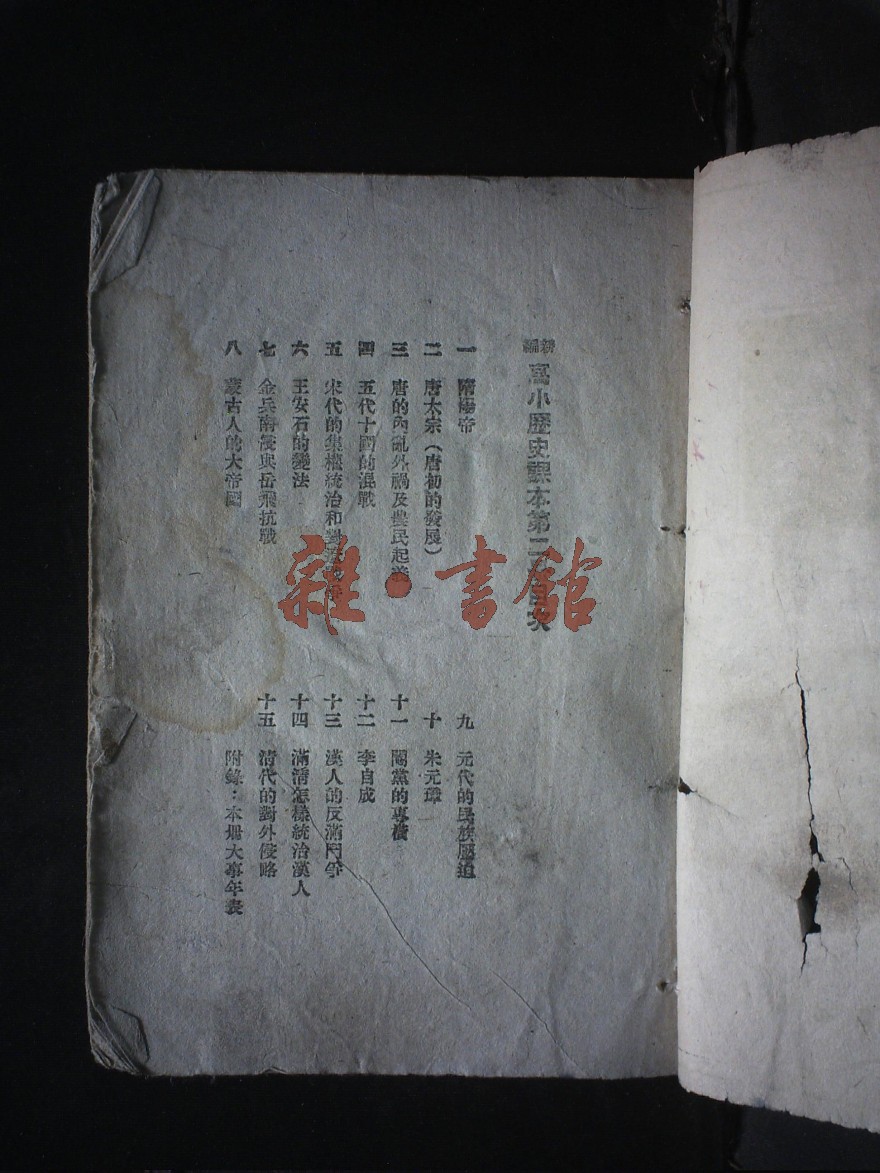 新編
高小歷史課本第二冊目次
一 隋煬帝
二 唐太宗(唐初的發展)
三 唐的內亂外禍及農民起義
四 五代十國的混戰
五 宋代的集權統治和對
六 王安石的變法
七 金兵南侵與岳飛抗戰
八 蒙古人的大帝國
九 元代的民族壓迫
十 朱元璋
十一 閹黨的專橫
十二 李自成
十三 漢人的反滿鬥爭
十四 滿清怎樣統治漢人
十五 清代的對外侵略
附錄:本期大事年表
雜·書館